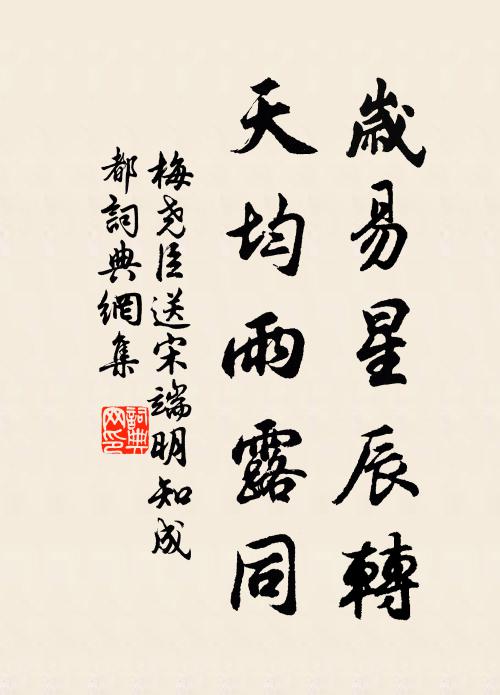 歲易星辰轉
天均雨露同
梅堯臣送宋端明知成
都詞典網集
詞典
网印